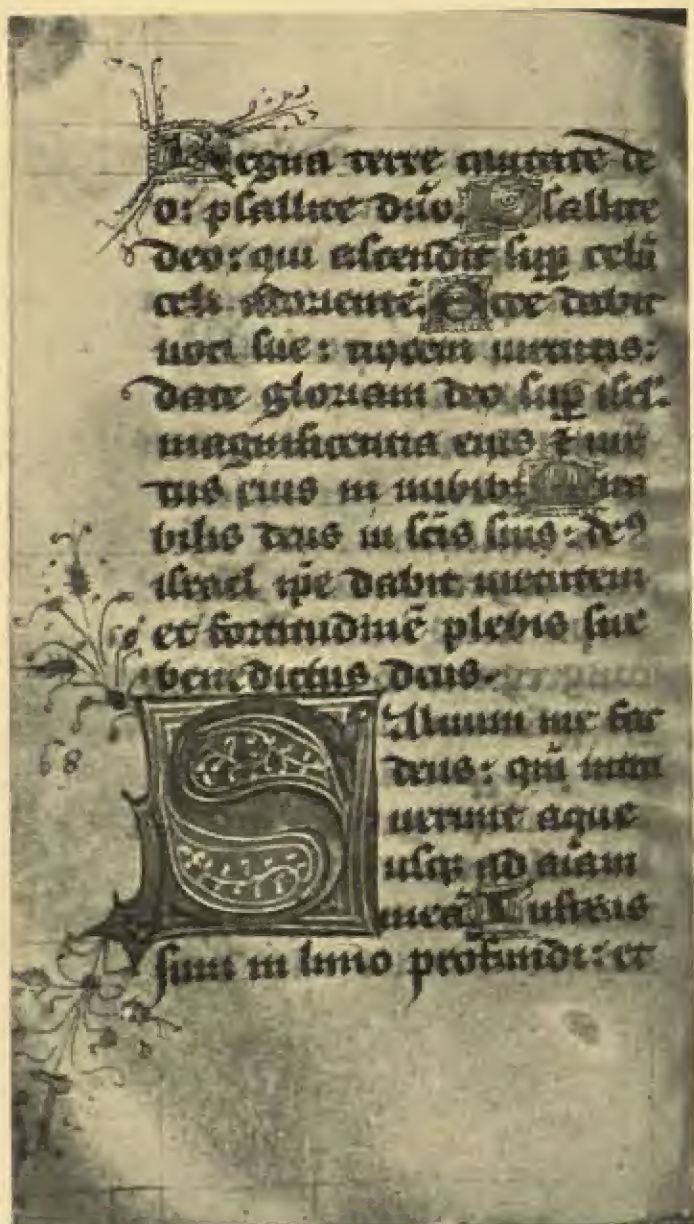 Regna terre cantate de
o: psallite dño. Psallite
deo: qui ascendit sup celū
celi ad orientē. Ecce dabit
uoci sue: uocem uirtutis:
date gloriam deo sup isrl.
magnificentia eius ⁊ uir
tus eius in nubibꝰ Mira
bilis deus in scīs suis: deꝰ
israel ip̄e dabit uirtutem
et fortitudinē plebis sue
benedictus deus.
Saluum me fac
deus: qm̄ intra
uerunt aque
usq; ad aīam
meā Infixus
sum in limo profundi: et
68